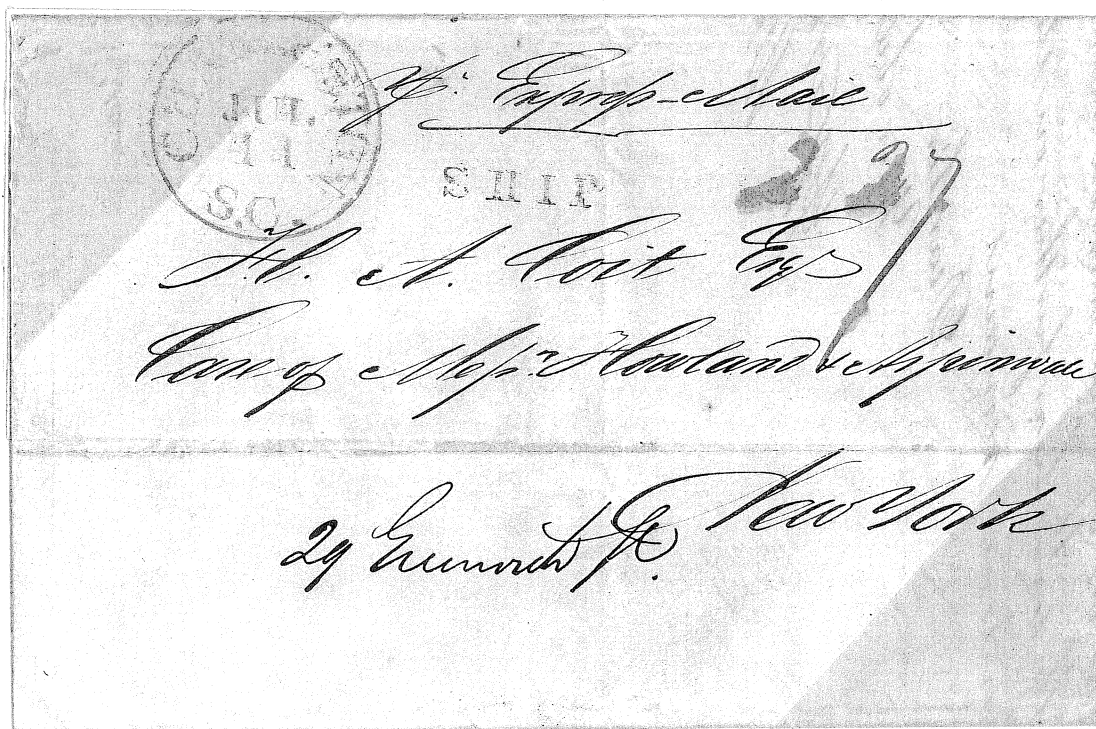 CHARLESTON
JUL
11
S.C.
Pr. Express-Mail
SHIP
227
H. A. Coit Esqr
Care of Messrs Howland & Aspinwall
New York
29 Greenwich St.